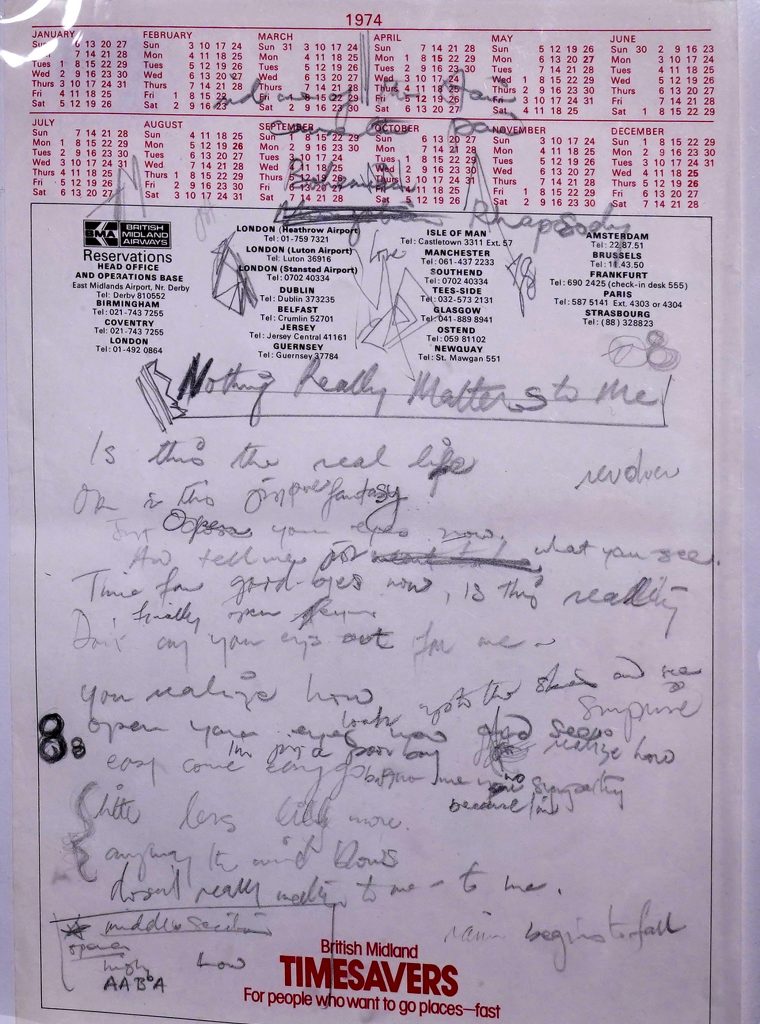 1974
JANUARY
Sun 6 13 20 27
Mon 7 14 21 28
Tues 1 8 15 22 29
Wed 2 9 16 23 30
Thurs 3 10 17 24 31
Fri 4 11 18 25
Sat 5 12 19 26
FEBRUARY
Sun 3 10 17 24
Mon 4 11 18 25
Tues 5 12 19 26
Wed 6 13 20 27
Thurs 7 14 21 28
Fri 1 8 15 22
Sat 2 9 16 23
MARCH
Sun 31 3 10 17 24
Mon 4 11 18 25
Tues 5 12 19 26
Wed 6 13 20 27
Thurs 7 14 21 28
Fri 1 8 15 22 29
Sat 2 9 16 23 30
APRIL
Sun 7 14 21 28
Mon 1 8 15 22 29
Tues 2 9 16 23 30
Wed 3 10 17 24
Thurs 4 11 18 25
Fri 5 12 19 26
Sat 6 13 20 27
MAY
Sun 5 12 19 26
Mon 6 13 20 27
Tues 7 14 21 28
Wed 1 8 15 22 29
Thurs 2 9 16 23 30
Fri 3 10 17 24 31
Sat 4 11 18 25
JUNE
Sun 30 2 9 16 23
Mon 3 10 17 24
Tues 4 11 18 25
Wed 5 12 19 26
Thurs 6 13 20 27
Fri 7 14 21 28
Sat 1 8 15 22 29
JULY
Sun 7 14 21 28
Mon 1 8 15 22 29
Tues 2 9 16 23 30
Wed 3 10 17 24 31
Thurs 4 11 18 25
Fri 5 12 19 26
Sat 6 13 20 27
AUGUST
Sun 4 11 18 25
Mon 5 12 19 26
Tues 6 13 20 27
Wed 7 14 21 28
Thurs 1 8 15 22 29
Fri 2 9 16 23 30
Sat 3 10 17 24 31
SEPTEMBER
Sun 1 8 15 22 29
Mon 2 9 16 23 30
Tues 3 10 17 24
Wed 4 11 18 25
Thurs 5 12 19 26
Fri 6 13 20 27
Sat 7 14 21 28
OCTOBER
Sun 6 13 20 27
Mon 7 14 21 28
Tues 1 8 15 22 29
Wed 2 9 16 23 30
Thurs 3 10 17 24 31
Fri 4 11 18 25
Sat 5 12 19 26
NOVEMBER
Sun 3 10 17 24
Mon 4 11 18 25
Tues 5 12 19 26
Wed 6 13 20 27
Thurs 7 14 21 28
Fri 1 8 15 22 29
Sat 2 9 16 23 30
DECEMBER
Sun 1 8 15 22 29
Mon 2 9 16 23 30
Tues 3 10 17 24 31
Wed 4 11 18 25
Thurs 5 12 19 26
Fri 6 13 20 27
Sat 7 14 21 28
Bohemian
Rhapsody
BMA BRITISH MIDLAND AIRWAYS
Reservations
HEAD OFFICE
AND OPERATIONS BASE
East Midlands Airport, Nr. Derby
Tel: Derby 810552
BIRMINGHAM
Tel: 021-743 7255
COVENTRY
Tel: 021-743 7255
LONDON
Tel: 01-492 0864
LONDON (Heathrow Airport)
Tel: 01-759 7321
LONDON (Luton Airport)
Tel: Luton 36916
LONDON (Stansted Airport)
Tel: 0702 40334
DUBLIN
Tel: Dublin 373235
BELFAST
Tel: Crumlin 52701
JERSEY
Tel: Jersey Central 41161
GUERNSEY
Tel: Guernsey 37784
love
ISLE OF MAN
Tel: Castletown 3311 Ext. 57
MANCHESTER
Tel: 061-437 2233
SOUTHEND
Tel: 0702 40334
TEES-SIDE
Tel: 032-573 2131
GLASGOW
Tel: 041-889 8941
OSTEND
Tel: 059 81102
NEWQUAY
Tel: St. Mawgan 551
AMSTERDAM
Tel: 22.87.51
BRUSSELS
Tel: 11.43.50
FRANKFURT
Tel: 690 2425 (check-in desk 555)
PARIS
Tel: 587 5141 Ext. 4303 or 4304
STRASBOURG
Tel: (88) 328823
Nothing Really Matters to Me
Is this the real life
Or is this just fantasy
Just Open your eyes now.
And tell me what you see.
Time for good-byes now, is this reality
finally open
Don't cry your eyes out for me
you realize how
look up to the skies and see
surprise
open your eyes now
realize how
I'm just a poor boy
easy come easy go
no sympathy
because I'm
little less little more.
anyway the wind blows
doesn't really matter to me - to me.
middle section
opera
high low
AABbA
rain begins to fall
British Midland
TIMESAVERS
For people who want to go places—fast